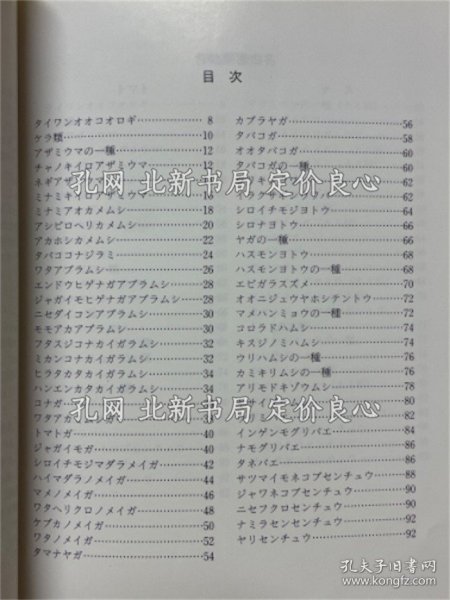 目 次
タイワンオオコオロギ 8
ケラ類 10
アザミウマの一種 12
チャノキイロアザミウマ 12
ネギアザ
ミナミキイロアザミウマ 16
ミナミアオカメムシ 18
アシビロヘリカメムシ 20
アカホシカメムシ 22
タバココナジラミ 24
ワタアブラムシ 26
エンドウヒゲナガアブラムシ 28
ジャガイモヒゲナガアブラムシ 28
ニセダイコンアブラムシ 30
モモアカアブラムシ 30
フタスジコナカイガラムシ 32
ミカンコナカイガラムシ 32
ヒラタカタカイガラムシ 34
ハンエンカタカイガラムシ 34
コナガ
ワタアカ
トマトガ 40
ジャガイモガ 40
シロイチモジマダラメイガ 42
ハイマダラノメイガ 44
マメノメイガ 46
ワタヘリクロノメイガ 48
ケブカノメイガ 50
ワタノメイガ 52
タマナヤガ 54
カブラヤガ 56
タバコガ 58
オオタバコガ 60
タバコガの一種 60
62
62
シロイチモジヨトウ 64
シロナヨトウ 66
ヤガの一種 66
ハスモンヨトウ 68
ハスモンヨトウの一種 68
エビガラスズメ 70
オオニジュウヤホシテントウ 72
マメハンミョウの一種 72
コロラドハムシ 74
キスジノミハムシ 74
ウリハムシの一種 76
カミキリムシの一種 76
アリモドキゾウムシ 78
80
82
インゲンモグリバエ 84
ナモグリバエ 86
タネバエ 86
サツマイモネコブセンチュウ 88
ジャワネコブセンチュウ 90
ニセフクロセンチュウ 90
ナミラセンセンチュウ 92
ヤリセンチュウ 92
孔网 北新书局 定价良心
孔网 北新书局 定价良心
孔夫子旧书网
www.kongfz.com